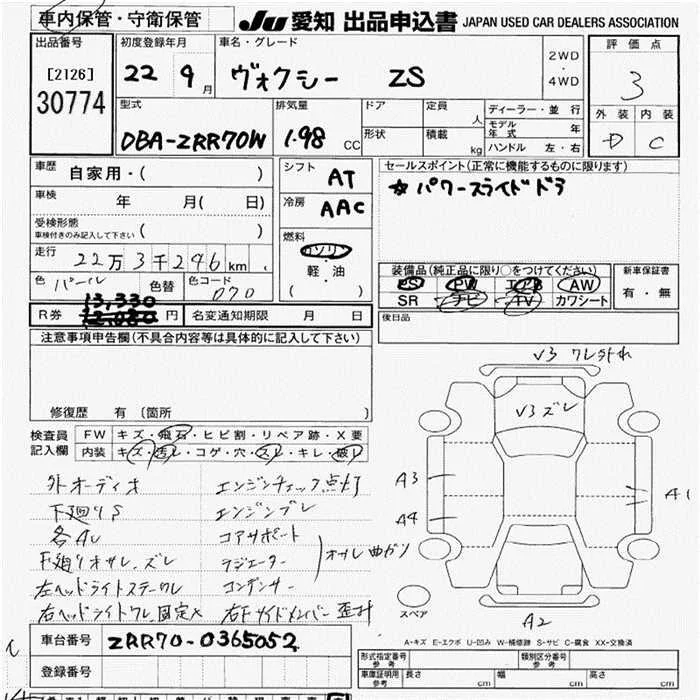 車内保管・守衛保管
JU 愛知 出品申込書 JAPAN USED CAR DEALERS ASSOCIATION
出品番号 初度登録年月 車名・グレード 評価点
[2126] 22 9月 ヴォクシー ZS 2WD・4WD 3
30774
型式 排気量 ドア 定員 人 ディーラー・並行 外装 内装
DBA-ZRR70W 1.98 CC 形状 積載 kg モデル年式 年 D C
ハンドル 左・右
車歴 自家用・( ) シフト AT セールスポイント(正常に機能するものに限ります)
車検 年 月( 日) 冷房 AAC ☆パワースライドドア
受検形態 車検付きのみ記入して下さい ( )
走行 22万3千246km 燃料 ガソリン 軽・油 ( )
色 パール 色替 色コード 070
装備品(純正品に限り○をつけてください) 新車保証書
PS PW エアB AW 有・無
SR ナビ TV カワシート
R券 13,330 12,080 円 名変通知期限 月 日 後日品
注意事項申告欄(不具合内容等は具体的に記入して下さい)
修復歴 有 〔箇所 〕
V3 ワレ外れ
V3 ズレ
検査員記入欄 FW キズ・飛石・ヒビ割・リペア跡・X要
内装 キズ・汚レ・コゲ・穴・スレ・キレ・破レ
外オーディオ エンジンチェック点灯
下廻りS エンジンブレ
各AL コアサポート
下廻りオサレ、ズレ ラジエーター オサレ曲がり
左ヘッドライトステーワレ コンデンサー
右ヘッドライトワレ、固定× 右Fサイドメンバー歪み
A3 A1
A4
スペア
A2
A-キズ E-エクボ U-凹み W-補修跡 S-サビ C-腐食 XX-交換済
車台番号 ZRR70-0365052
登録番号
形式指定番号 参考 類別区分番号 参考
車庫証明用 参考 長さ cm 幅 cm 高さ cm